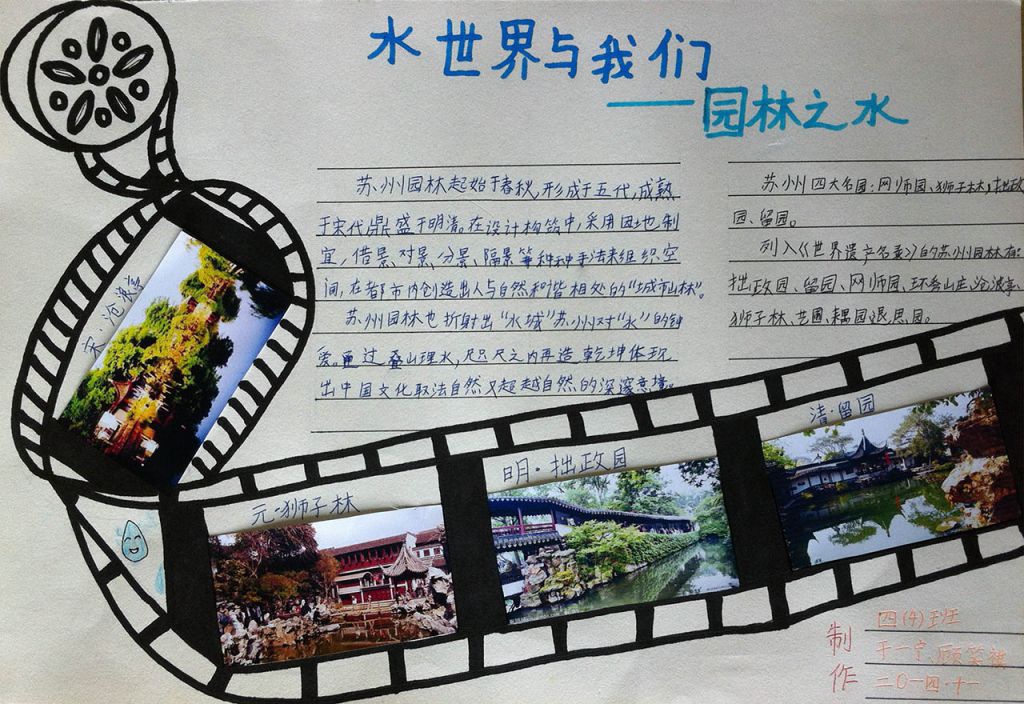 水世界与我们
——园林之水
苏州园林起始于春秋,形成于五代,成熟
于宋代,鼎盛于明清。在设计构筑中,采用因地制
宜,借景、对景、分景、隔景等种种手法来组织空
间,在都市内创造出人与自然和谐相处的“城市山林”。
苏州园林也折射出“水城”苏州对“水”的钟
爱。通过叠山理水,咫尺之内再造乾坤体现
出中国文化取法自然又超越自然的深邃意境。
苏州四大名园:网师园、狮子林、拙政
园、留园。
列入《世界遗产名录》的苏州园林有:
拙政园、留园、网师园、环秀山庄、沧浪亭、
狮子林、艺圃、耦园、退思园。
宋·沧浪亭
元·狮子林
明·拙政园
清·留园
制作
四(4)班
一宁、顾笑
二〇一四·十一